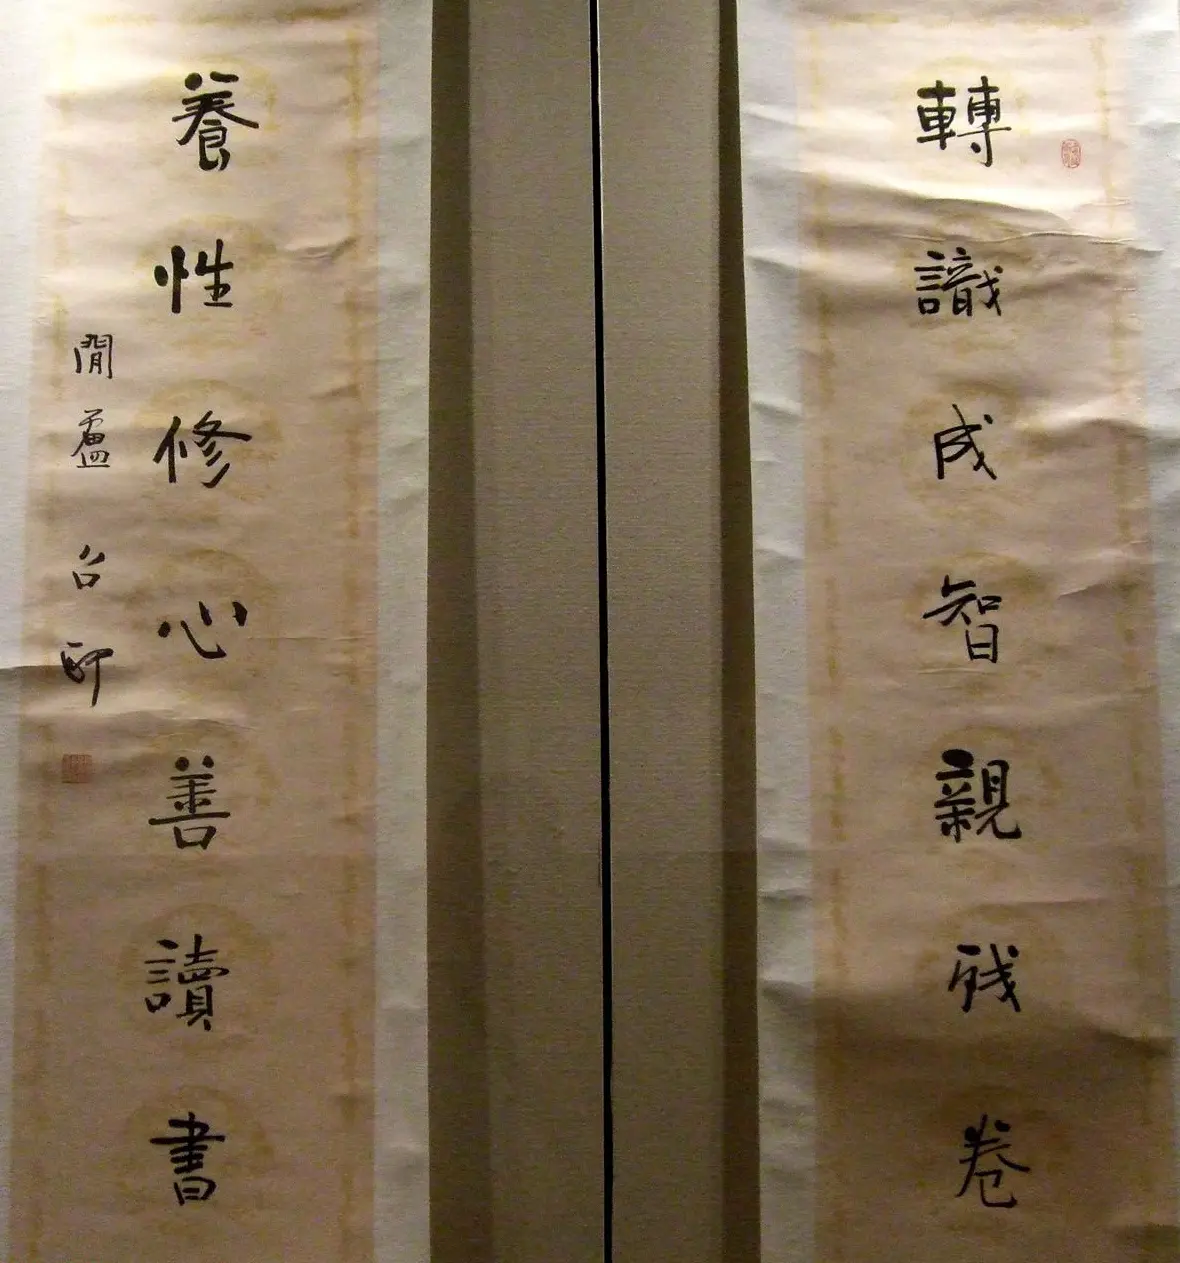 轉識成智親殘卷
養性修心善讀書
閒盧 台印